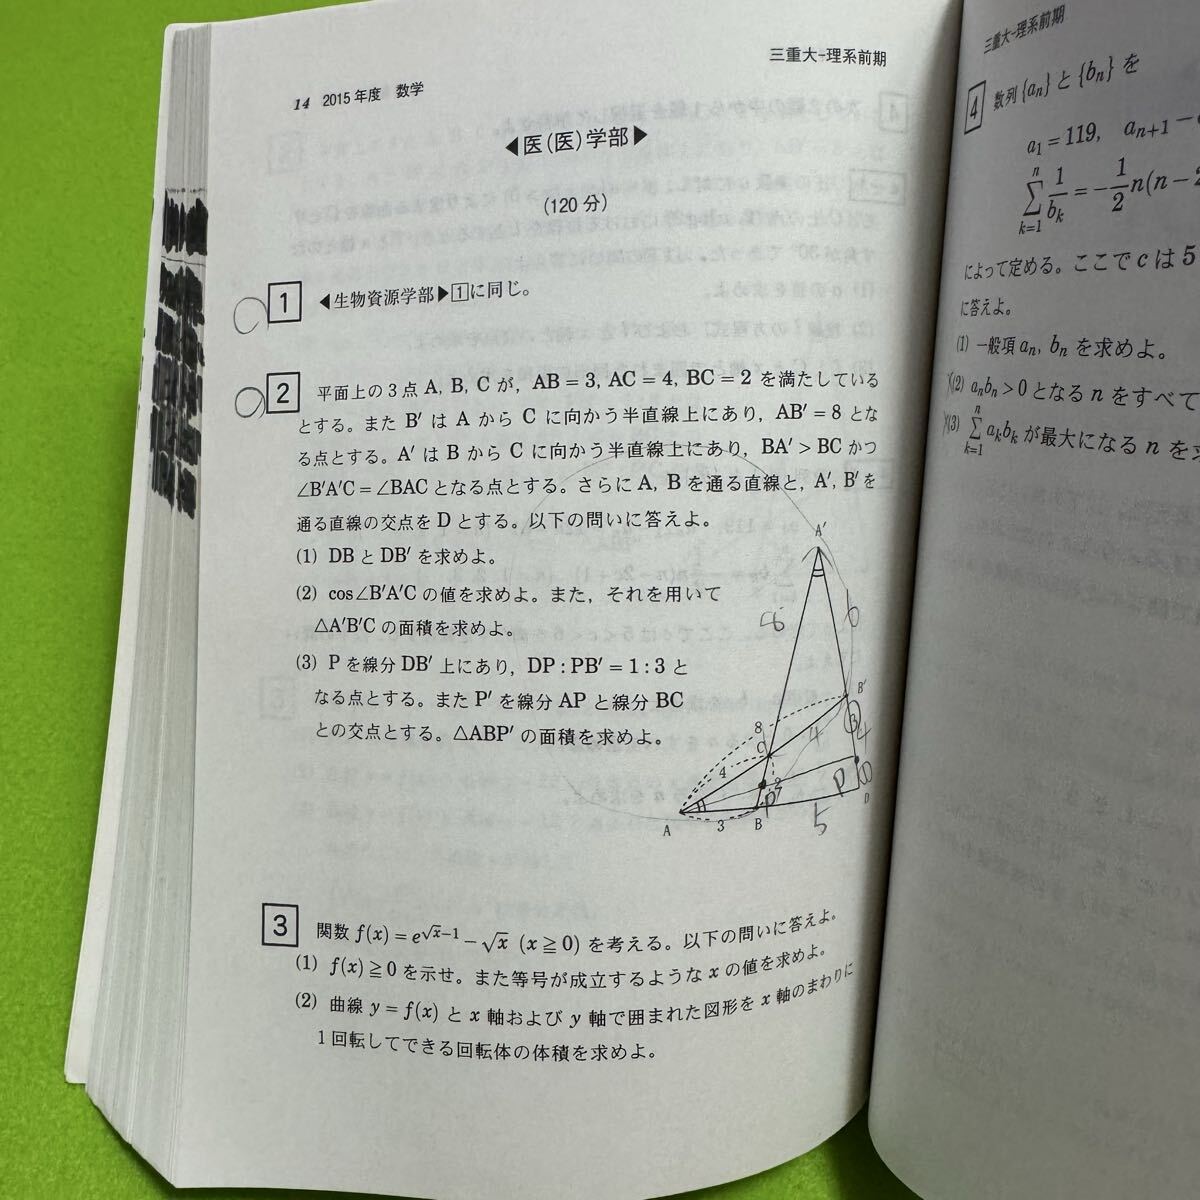 14 2015年度 数学
三重大-理系前期
◀医(医)学部▶
(120分)
1 ◀生物資源学部▶1に同じ。
2 平面上の3点A, B, Cが, AB=3, AC=4, BC=2を満たしている
とする。またB′はAからCに向かう半直線上にあり, AB′=8とな
る点とする。A′はBからCに向かう半直線上にあり, BA′>BCかつ
∠B′A′C=∠BACとなる点とする。さらにA, Bを通る直線と, A′, B′を
通る直線の交点をDとする。以下の問いに答えよ。
(1) DBとDB′を求めよ。
(2) cos∠B′A′Cの値を求めよ。また, それを用いて
△A′B′Cの面積を求めよ。
(3) Pを線分DB′上にあり, DP:PB′=1:3と
なる点とする。またP′を線分APと線分BC
との交点とする。△ABP′の面積を求めよ。
A′
8
6
B′
8
C
4
3
4
4
2
P′
P
1
D
A
3
B
5
3 関数f(x)=e^{√x−1}−√x (x≧0)を考える。以下の問いに答えよ。
(1) f(x)≧0を示せ。また等号が成立するようなxの値を求めよ。
(2) 曲線y=f(x)とx軸およびy軸で囲まれた図形をx軸のまわりに
1回転してできる回転体の体積を求めよ。
三重大-理系前期
4 数列{aₙ}と{bₙ}を
a₁=119, aₙ₊₁−
n
∑ 1/bₖ=−1/2 n(n−2
k=1
によって定める。ここでcは5
に答えよ。
(1) 一般項aₙ, bₙを求めよ。
(2) aₙbₙ>0となるnをすべて
n
(3) ∑ aₖbₖが最大になるnを
k=1